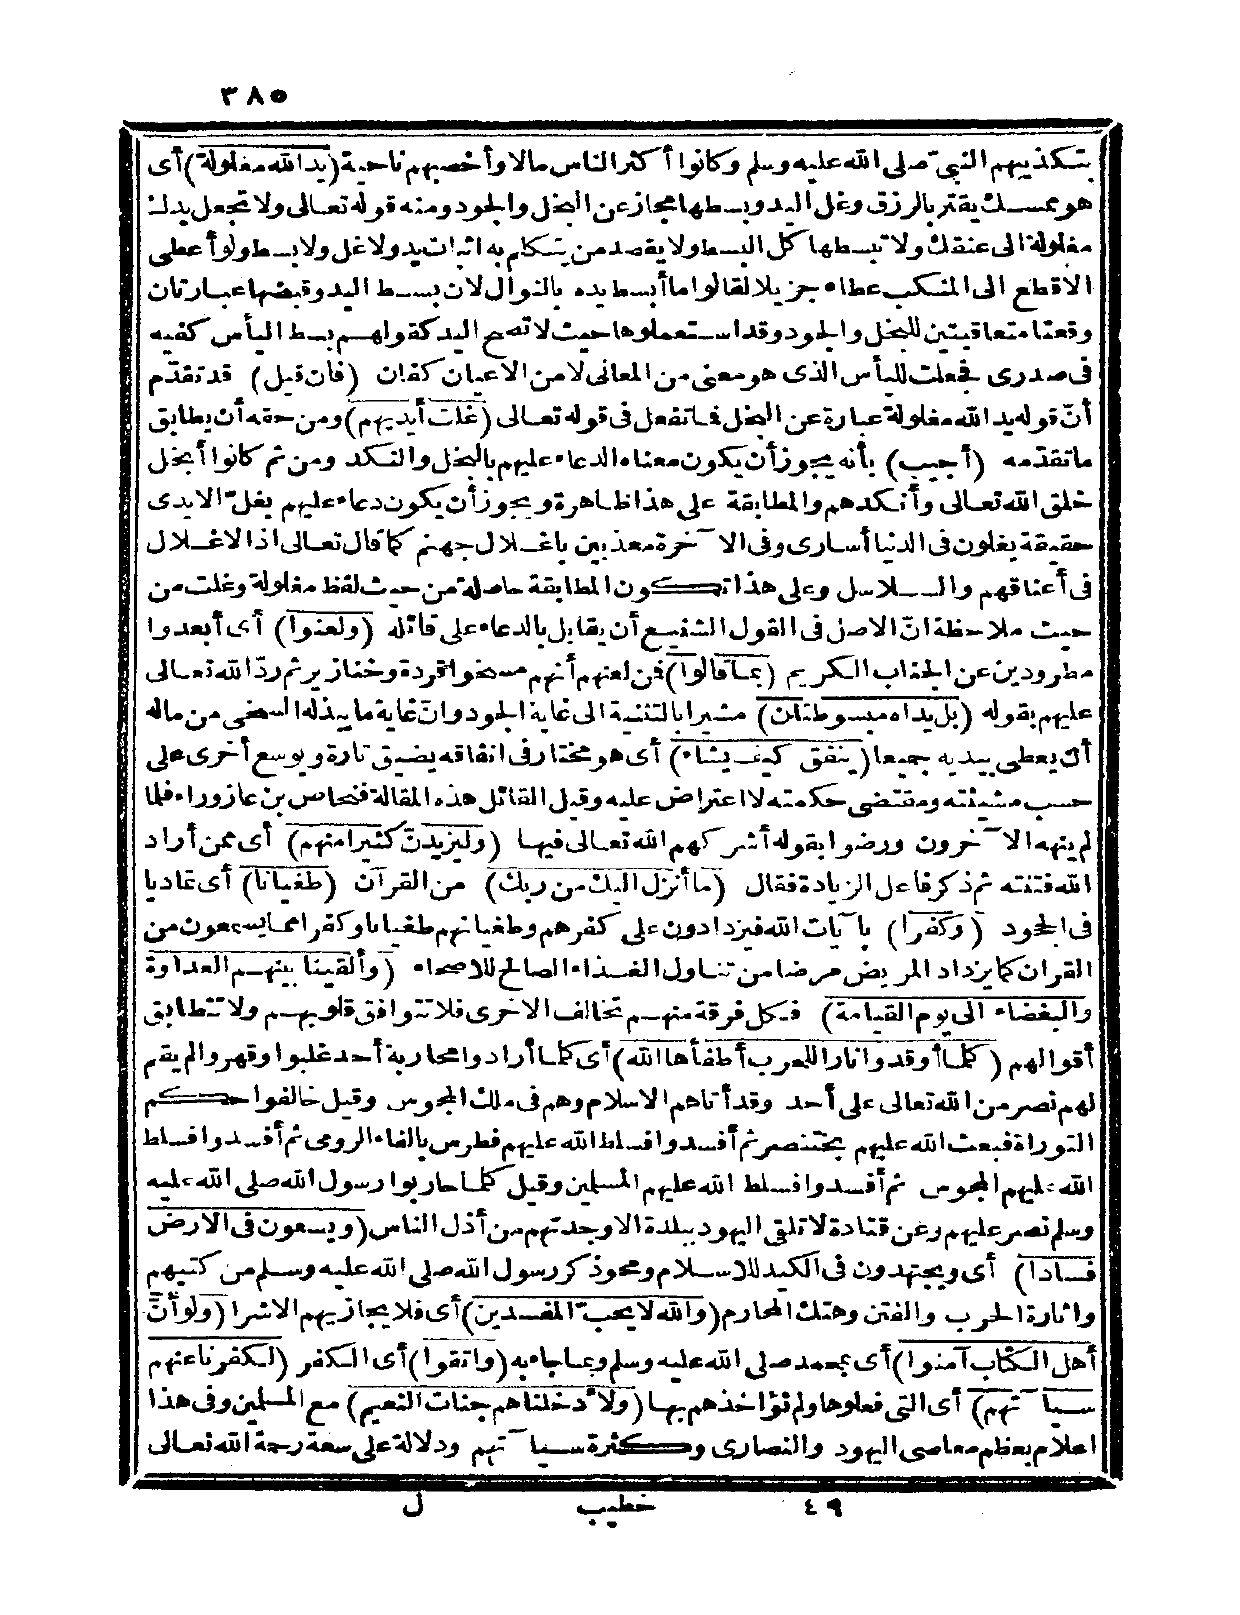 ٣٨٥
بتكذيبهم النبيّ صلى الله عليه وسلم وكانوا أكثر الناس مالا وأخصبهم ناحية (يد الله مغلولة) أى
هو ممسك يقتر بالرزق وغل اليد وبسطها مجاز عن البخل والجود ومنه قوله تعالى ولا تجعل يدك
مغلولة الى عنقك ولا تبسطها كل البسط ولا يقصد من يتكلم به اثبات يد ولا غل ولا بسط ولو أعطى
الاقطع الى المنكب عطاء جزيلا لقالوا ما أبسط يده بالنوال لان بسط اليد وقبضها عبارتان
وقعتا متعاقبتين للبخل والجود وقد استعملوها حيث لا تصح اليد كقولهم بسط اليأس كفيه
فى صدرى فجعلت لليأس الذى هو معنى من المعانى لا من الاعيان كفان (فان قيل) قد تقدّم
أنّ قوله يد الله مغلولة عبارة عن البخل فما تفعل فى قوله تعالى (غلت أيديهم) ومن حقه أن يطابق
ما تقدّمه (أجيب) بأنه يجوز أن يكون معناه الدعاء عليهم بالبخل والنكد ومن ثم كانوا أبخل
خلق الله تعالى وأنكدهم والمطابقة على هذا ظاهرة ويجوز أن يكون دعاء عليهم بغلّ الايدى
حقيقة يغلون فى الدنيا أسارى وفى الآخرة معذبين باغلال جهنم كما قال تعالى اذ الاغلال
فى أعناقهم والسلاسل وعلى هذا تكون المطابقة حاصلة من حيث لفظ مغلولة وغلت من
حيث ملاحظة انّ الاصل فى القول الشنيع أن يقابل بالدعاء على قائله (ولعنوا) أى أبعدوا
مطرودين عن الجناب الكريم (بما قالوا) فمن لعنهم أنهم مسخوا قردة وخنازير ثم ردّ الله تعالى
عليهم بقوله (بل يداه مبسوطتان) مشيرا بالتثنية الى غاية الجود وانّ غاية ما يبذله السخى من ماله
أن يعطى بيديه جميعا (ينفق كيف يشاء) أى هو مختار فى انفاقه يضيق تارة ويوسع أخرى على
حسب مشيئته ومقتضى حكمته لا اعتراض عليه وقيل القائل هذه المقالة فنحاص بن عازوراء فلما
لم ينهه الآخرون ورضوا بقوله أشركهم الله تعالى فيها (وليزيدنّ كثيرا منهم) أى ممن أراد
الله فتنته ثم ذكر فاعل الزيادة فقال (ما أنزل اليك من ربك) من القرآن (طغيانا) أى عاديا
فى الجحود (وكفرا) بآيات الله فيزدادون على كفرهم وطغيانهم طغيانا وكفرا مما يسمعون من
القرآن كما يزداد المريض مرضا من تناول الغذاء الصالح للاصحاء (وألقينا بينهم العداوة
والبغضاء الى يوم القيامة) فكل فرقة منهم تخالف الاخرى فلا تتوافق قلوبهم ولا تتطابق
أقوالهم (كلما أوقدوا نارا للحرب أطفأها الله) أى كلما أرادوا محاربة أحد غلبوا وقهروا لم يقم
لهم نصر من الله تعالى على أحد وقد أتاهم الاسلام وهم فى ملك المجوس وقيل خالفوا حكم
التوراة فبعث الله عليهم بختنصر ثم أفسدوا فسلط الله عليهم فطرس بالفاء الرومى ثم أفسدوا فسلط
الله عليهم المجوس ثم أفسدوا فسلط الله عليهم المسلمين وقيل كلما حاربوا رسول الله صلى الله عليه
وسلم نصر عليهم وعن قتادة لا تلقى اليهود ببلدة الا وجدتهم من أذل الناس (ويسعون فى الارض
فسادا) أى ويجتهدون فى الكيد للاسلام ومحو ذكر رسول الله صلى الله عليه وسلم من كتبهم
واثارة الحرب والفتن وهتك المحارم (والله لا يحبّ المفسدين) أى فلا يجازيهم الا شرا (ولو أنّ
أهل الكتاب آمنوا) أى بمحمد صلى الله عليه وسلم وبما جاء به (واتقوا) أى الكفر (لكفرنا عنهم
سيآتهم) أى التى فعلوها ولم نؤاخذهم بها (ولأدخلناهم جنات النعيم) مع المسلمين وفى هذا
اعلام بعظم معاصى اليهود والنصارى وكثرة سيآتهم ودلالة على سعة رحمة الله تعالى
٤٩ خطيب ل